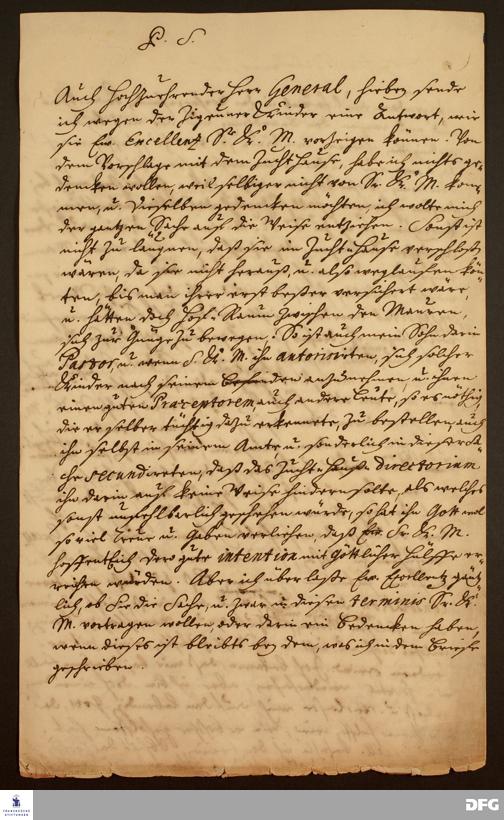 P. S.
Auch Hochzuehrender Herr General, hiebey sende
ich wegen der Zigeuner Kinder eine Antwort, wie
sie Ew. Excellentz Sr. K. M. vorzeigen können. Von
dem Vorschlage mit dem Zuchthause, habe ich nichts ge-
dencken wollen, weil selbiger nicht von Sr. K. M. kom-
men, u. dieselben gedencken möchten, ich wolte mich
der gantzen Sache auf die Weise entziehen. Sonst ist
nicht zu läugnen, daß sie im Zucht-Hause verschloßen
wären, da sie nicht herauß, u. also weglauffen kön-
ten, biß man ihrer erst beßer versichert wäre,
u. hätten doch Hof-Raum zwischen den Mauren,
sich zur Gnüge zu bewegen. So ist auch mein Sohn darin
Pastor, u. wenn S. K. M. ihn autorisirten, sich solcher
Kinder nach seinem anzunehmen, u. ihnen
einen guten Præceptorem, auch andere Leute, so es nöthig,
die er selber tüchtig dazu erkennete, zu bestellen, auch
ihn selbst in seinem Amte u. sonderlich in dieser Sa-
che secundireten, daß das Zucht-Hauß directorium
ihn darin auf keine Weise hindern solte, als welches
sonst unfehlbarlich geschehen würde, so hat ihn Gott wol
so viel Treue u. Gaben verliehen, daß Sr. K. M.
hoffentlich dero gute intention mit Göttlicher Hülffe er-
reichen würden. Aber ich überlaße Ew. Excellentz gäntz-
lich, ob Sie die Sache, u. zwar in diesen terminis Sr. K.
M. vortragen wollen, oder darin ein Bedencken haben,
wenn dieses ist bleibts bey dem, was ich in dem Briefe
geschrieben.
FRANCKESCHE
STIFTUNGEN
DFG